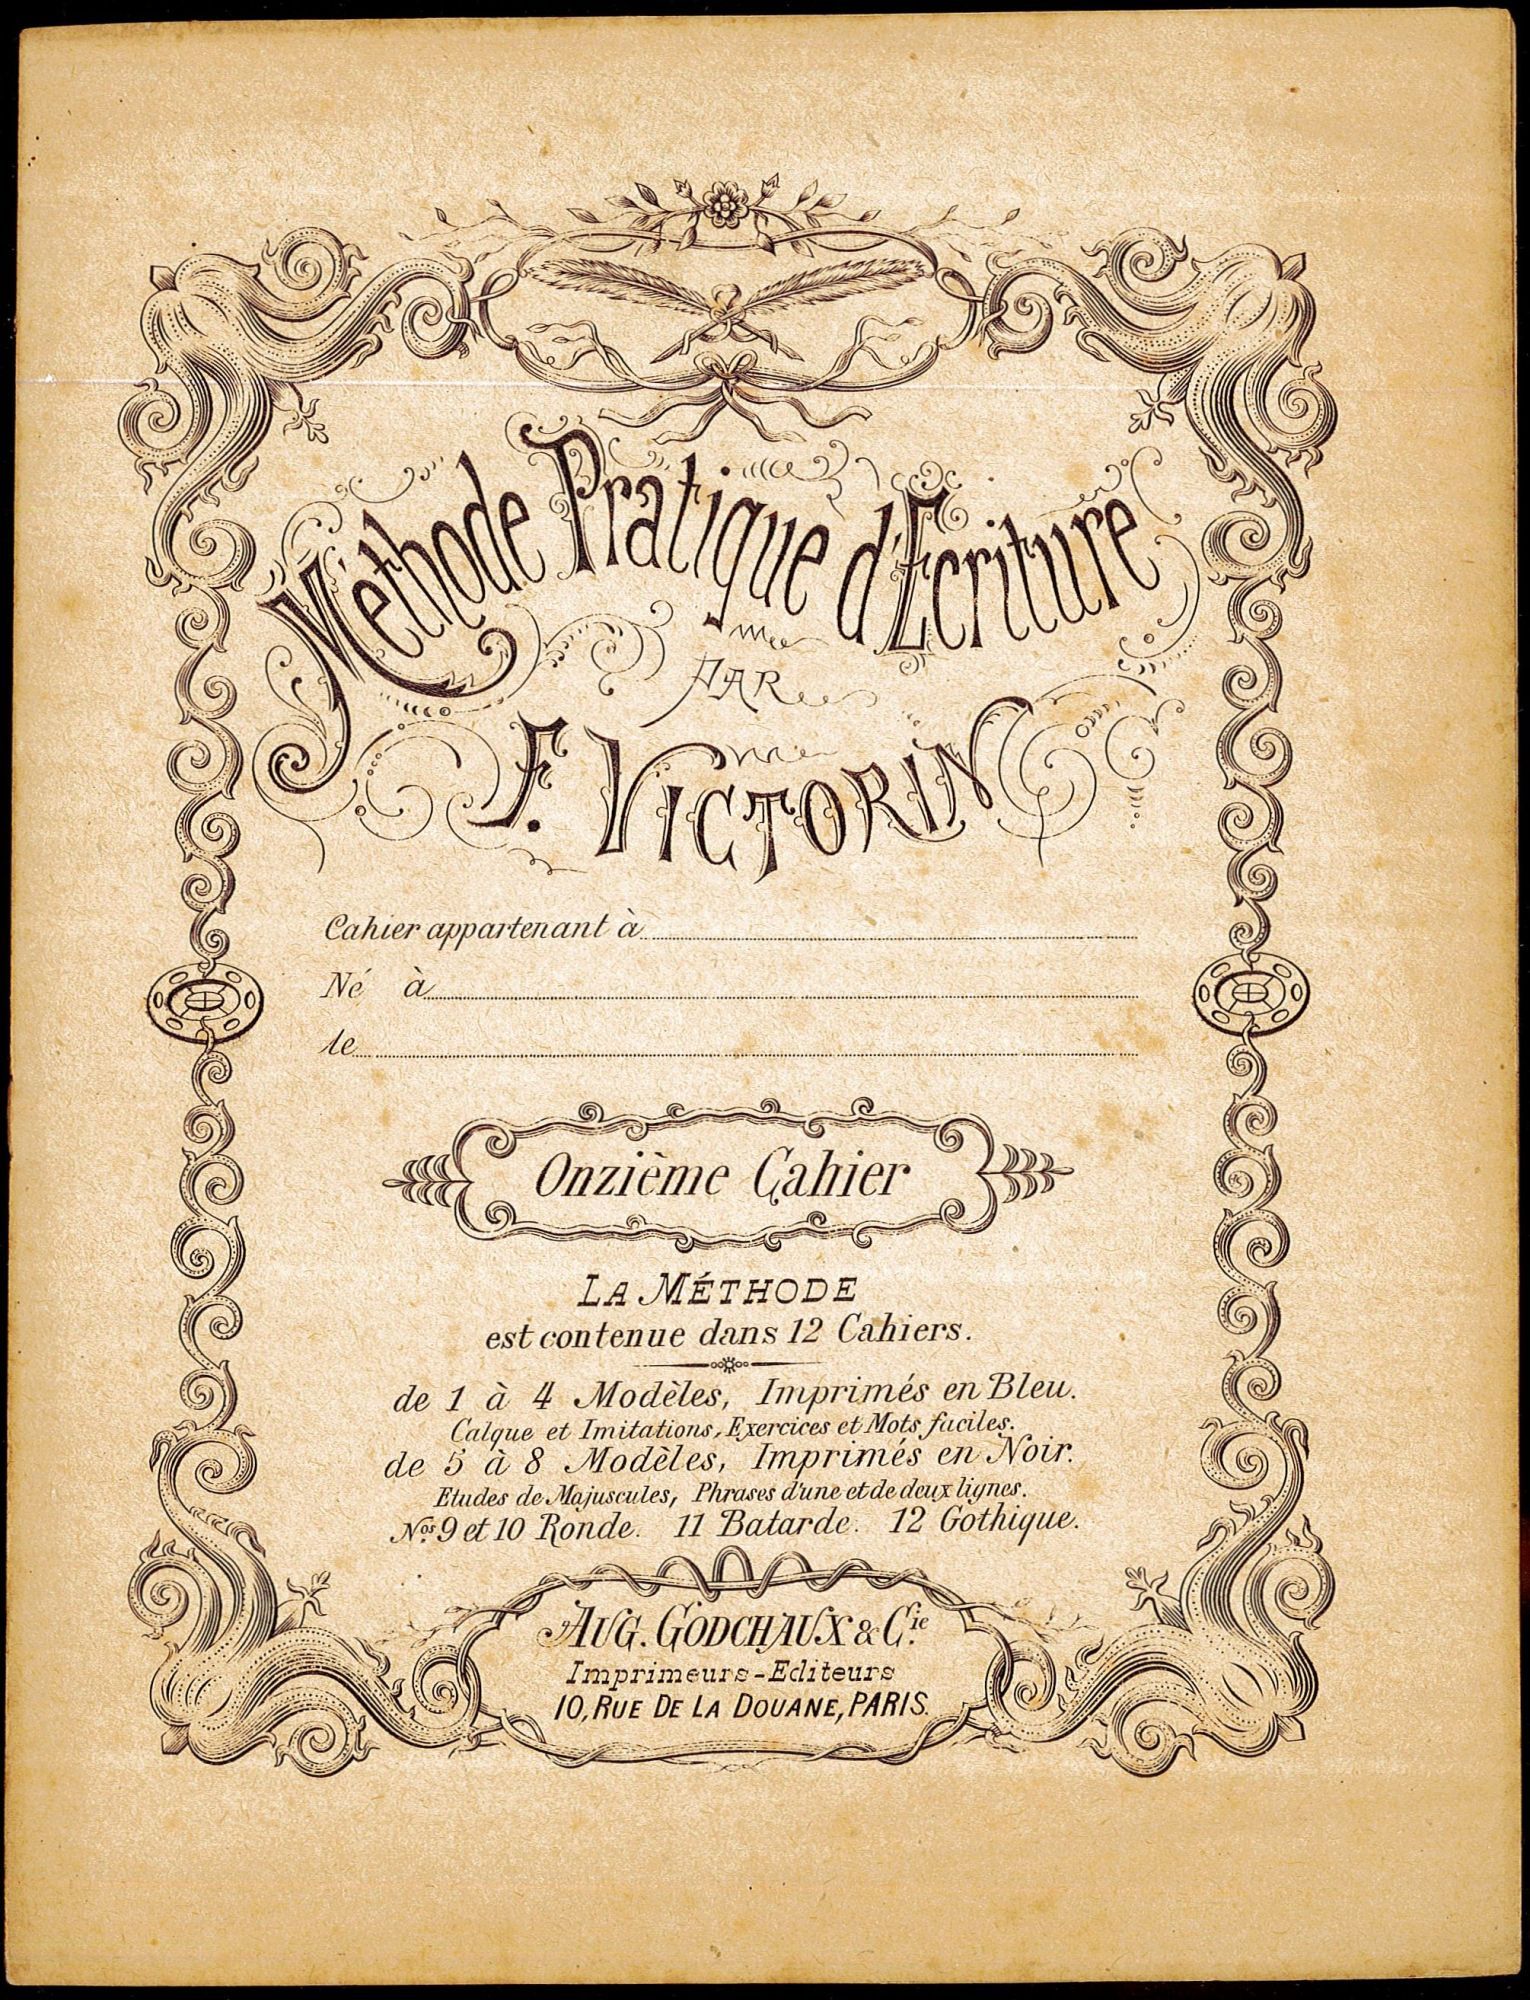 Méthode Pratique d'Ecriture
PAR
F. VICTORIN
Cahier appartenant à
Né à
le
Onzième Cahier
LA MÉTHODE
est contenue dans 12 Cahiers.
de 1 à 4 Modèles, Imprimés en Bleu.
Calque et Imitations, Exercices et Mots faciles.
de 5 à 8 Modèles, Imprimés en Noir.
Etudes de Majuscules, Phrases d'une et de deux lignes.
Nos 9 et 10 Ronde. 11 Batarde. 12 Gothique.
AUG. GODCHAUX & Cie
Imprimeurs-Editeurs
10, RUE DE LA DOUANE, PARIS.